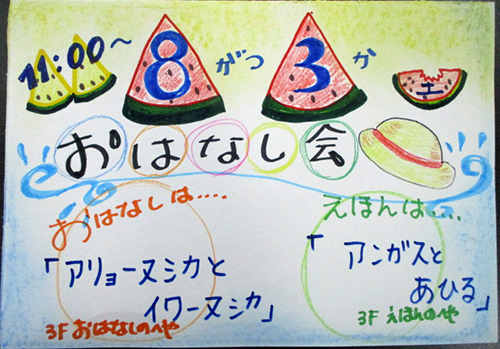 11:00~ 8がつ3か 土
おはなし会
おはなしは....
「アリョーヌシカと
イワーヌシカ」
3F おはなしのへや
えほんは....
「アンガスと
あひる」
3F えほんのへや